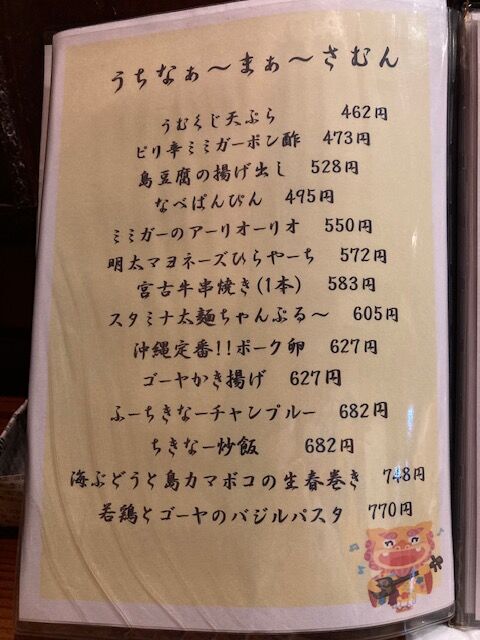 うちなぁ～まぁ～さむん
うむくじ天ぷら 462円
ピリ辛ミミガーポン酢 473円
島豆腐の揚げ出し 528円
なべぱんびん 495円
ミミガーのアーリオーリオ 550円
明太マヨネーズひらやーち 572円
宮古牛串焼き(1本) 583円
スタミナ太麺ちゃんぷる～ 605円
沖縄定番!!ポーク卵 627円
ゴーヤかき揚げ 627円
ふーちきなーチャンプルー 682円
ちきなー炒飯 682円
海ぶどうと島カマボコの生春巻き 748円
若鶏とゴーヤのバジルパスタ 770円